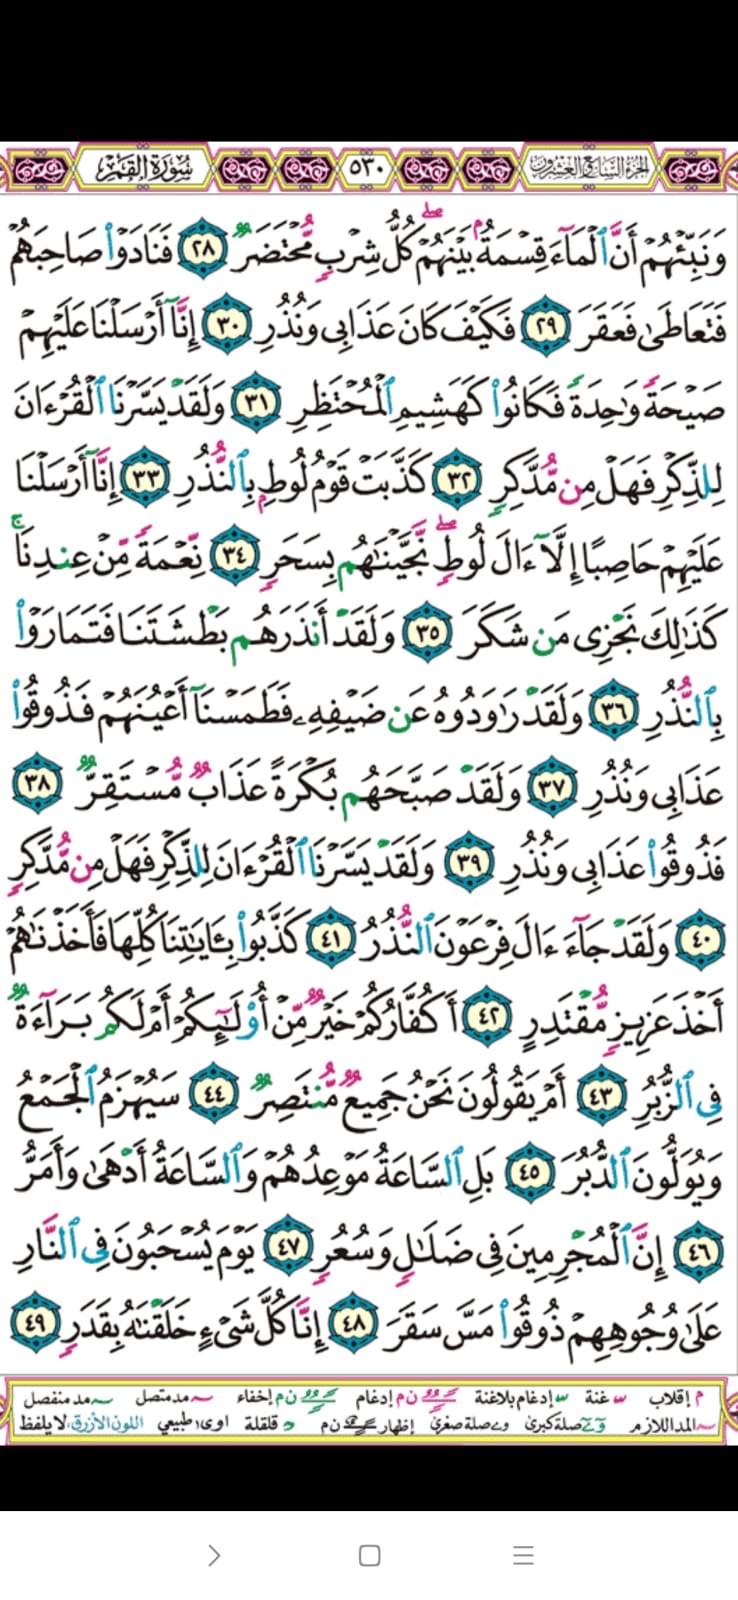 سُورَةُ القَمَر ٥٣٠ الجُزءُ السَّابِعُ وَالعِشرُونَ
وَنَبِّئْهُمْ أَنَّ ٱلْمَآءَ قِسْمَةٌۢ بَيْنَهُمْ ۖ كُلُّ شِرْبٍ مُّحْتَضَرٌ ٢٨ فَنَادَوْا۟ صَاحِبَهُمْ
فَتَعَاطَىٰ فَعَقَرَ ٢٩ فَكَيْفَ كَانَ عَذَابِى وَنُذُرِ ٣٠ إِنَّآ أَرْسَلْنَا عَلَيْهِمْ
صَيْحَةً وَٰحِدَةً فَكَانُوا۟ كَهَشِيمِ ٱلْمُحْتَظِرِ ٣١ وَلَقَدْ يَسَّرْنَا ٱلْقُرْءَانَ
لِلذِّكْرِ فَهَلْ مِن مُّدَّكِرٍ ٣٢ كَذَّبَتْ قَوْمُ لُوطٍۭ بِٱلنُّذُرِ ٣٣ إِنَّآ أَرْسَلْنَا
عَلَيْهِمْ حَاصِبًا إِلَّآ ءَالَ لُوطٍ ۖ نَّجَّيْنَٰهُم بِسَحَرٍ ٣٤ نِّعْمَةً مِّنْ عِندِنَا ۚ
كَذَٰلِكَ نَجْزِى مَن شَكَرَ ٣٥ وَلَقَدْ أَنذَرَهُم بَطْشَتَنَا فَتَمَارَوْا۟
بِٱلنُّذُرِ ٣٦ وَلَقَدْ رَٰوَدُوهُ عَن ضَيْفِهِۦ فَطَمَسْنَآ أَعْيُنَهُمْ فَذُوقُوا۟
عَذَابِى وَنُذُرِ ٣٧ وَلَقَدْ صَبَّحَهُم بُكْرَةً عَذَابٌ مُّسْتَقِرٌّ ٣٨
فَذُوقُوا۟ عَذَابِى وَنُذُرِ ٣٩ وَلَقَدْ يَسَّرْنَا ٱلْقُرْءَانَ لِلذِّكْرِ فَهَلْ مِن مُّدَّكِرٍ
٤٠ وَلَقَدْ جَآءَ ءَالَ فِرْعَوْنَ ٱلنُّذُرُ ٤١ كَذَّبُوا۟ بِـَٔايَٰتِنَا كُلِّهَا فَأَخَذْنَٰهُمْ
أَخْذَ عَزِيزٍ مُّقْتَدِرٍ ٤٢ أَكُفَّارُكُمْ خَيْرٌ مِّنْ أُو۟لَٰٓئِكُمْ أَمْ لَكُم بَرَآءَةٌ
فِى ٱلزُّبُرِ ٤٣ أَمْ يَقُولُونَ نَحْنُ جَمِيعٌ مُّنتَصِرٌ ٤٤ سَيُهْزَمُ ٱلْجَمْعُ
وَيُوَلُّونَ ٱلدُّبُرَ ٤٥ بَلِ ٱلسَّاعَةُ مَوْعِدُهُمْ وَٱلسَّاعَةُ أَدْهَىٰ وَأَمَرُّ
٤٦ إِنَّ ٱلْمُجْرِمِينَ فِى ضَلَٰلٍ وَسُعُرٍ ٤٧ يَوْمَ يُسْحَبُونَ فِى ٱلنَّارِ
عَلَىٰ وُجُوهِهِمْ ذُوقُوا۟ مَسَّ سَقَرَ ٤٨ إِنَّا كُلَّ شَىْءٍ خَلَقْنَٰهُ بِقَدَرٍ ٤٩
م إقلاب غنة إدغام بلاغنة ن م إدغام ن م إخفاء مد متصل مد منفصل
المد اللازم صلة كبرى صلة صغرى إظهار ن م قلقلة ا و ى طبيعي اللون الأزرق: لا يلفظ